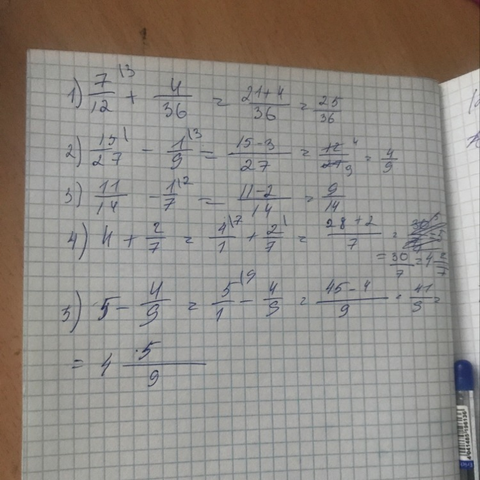 1) 7/12 \3 + 4/36 = 21+4/36 = 25/36
2) 15/27 \1 - 1/9 \3 = 15-3/27 = 12/27 4/9 = 4/9
3) 11/14 - 1/7 \2 = 11-2/14 = 9/14
4) 4 + 2/7 = 4/1 \7 + 2/7 \1 = 28+2/7 =
= 30/7 = 4 2/7
5) 5 - 4/9 = 5/1 \9 - 4/9 = 45-4/9 = 41/9 =
= 4 5/9